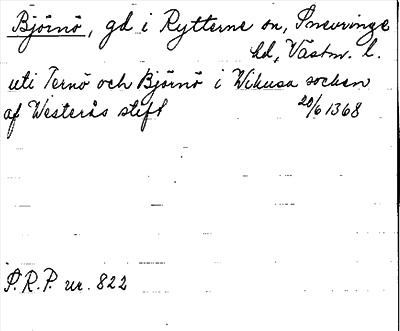 Björnö, gd i Rytterne sn, Snevringe
hd, Västm. l.
uti Ternö och Björnö i Wikusa socken
af Westerås stift 20/6 1368
S.R.P. nr. 822